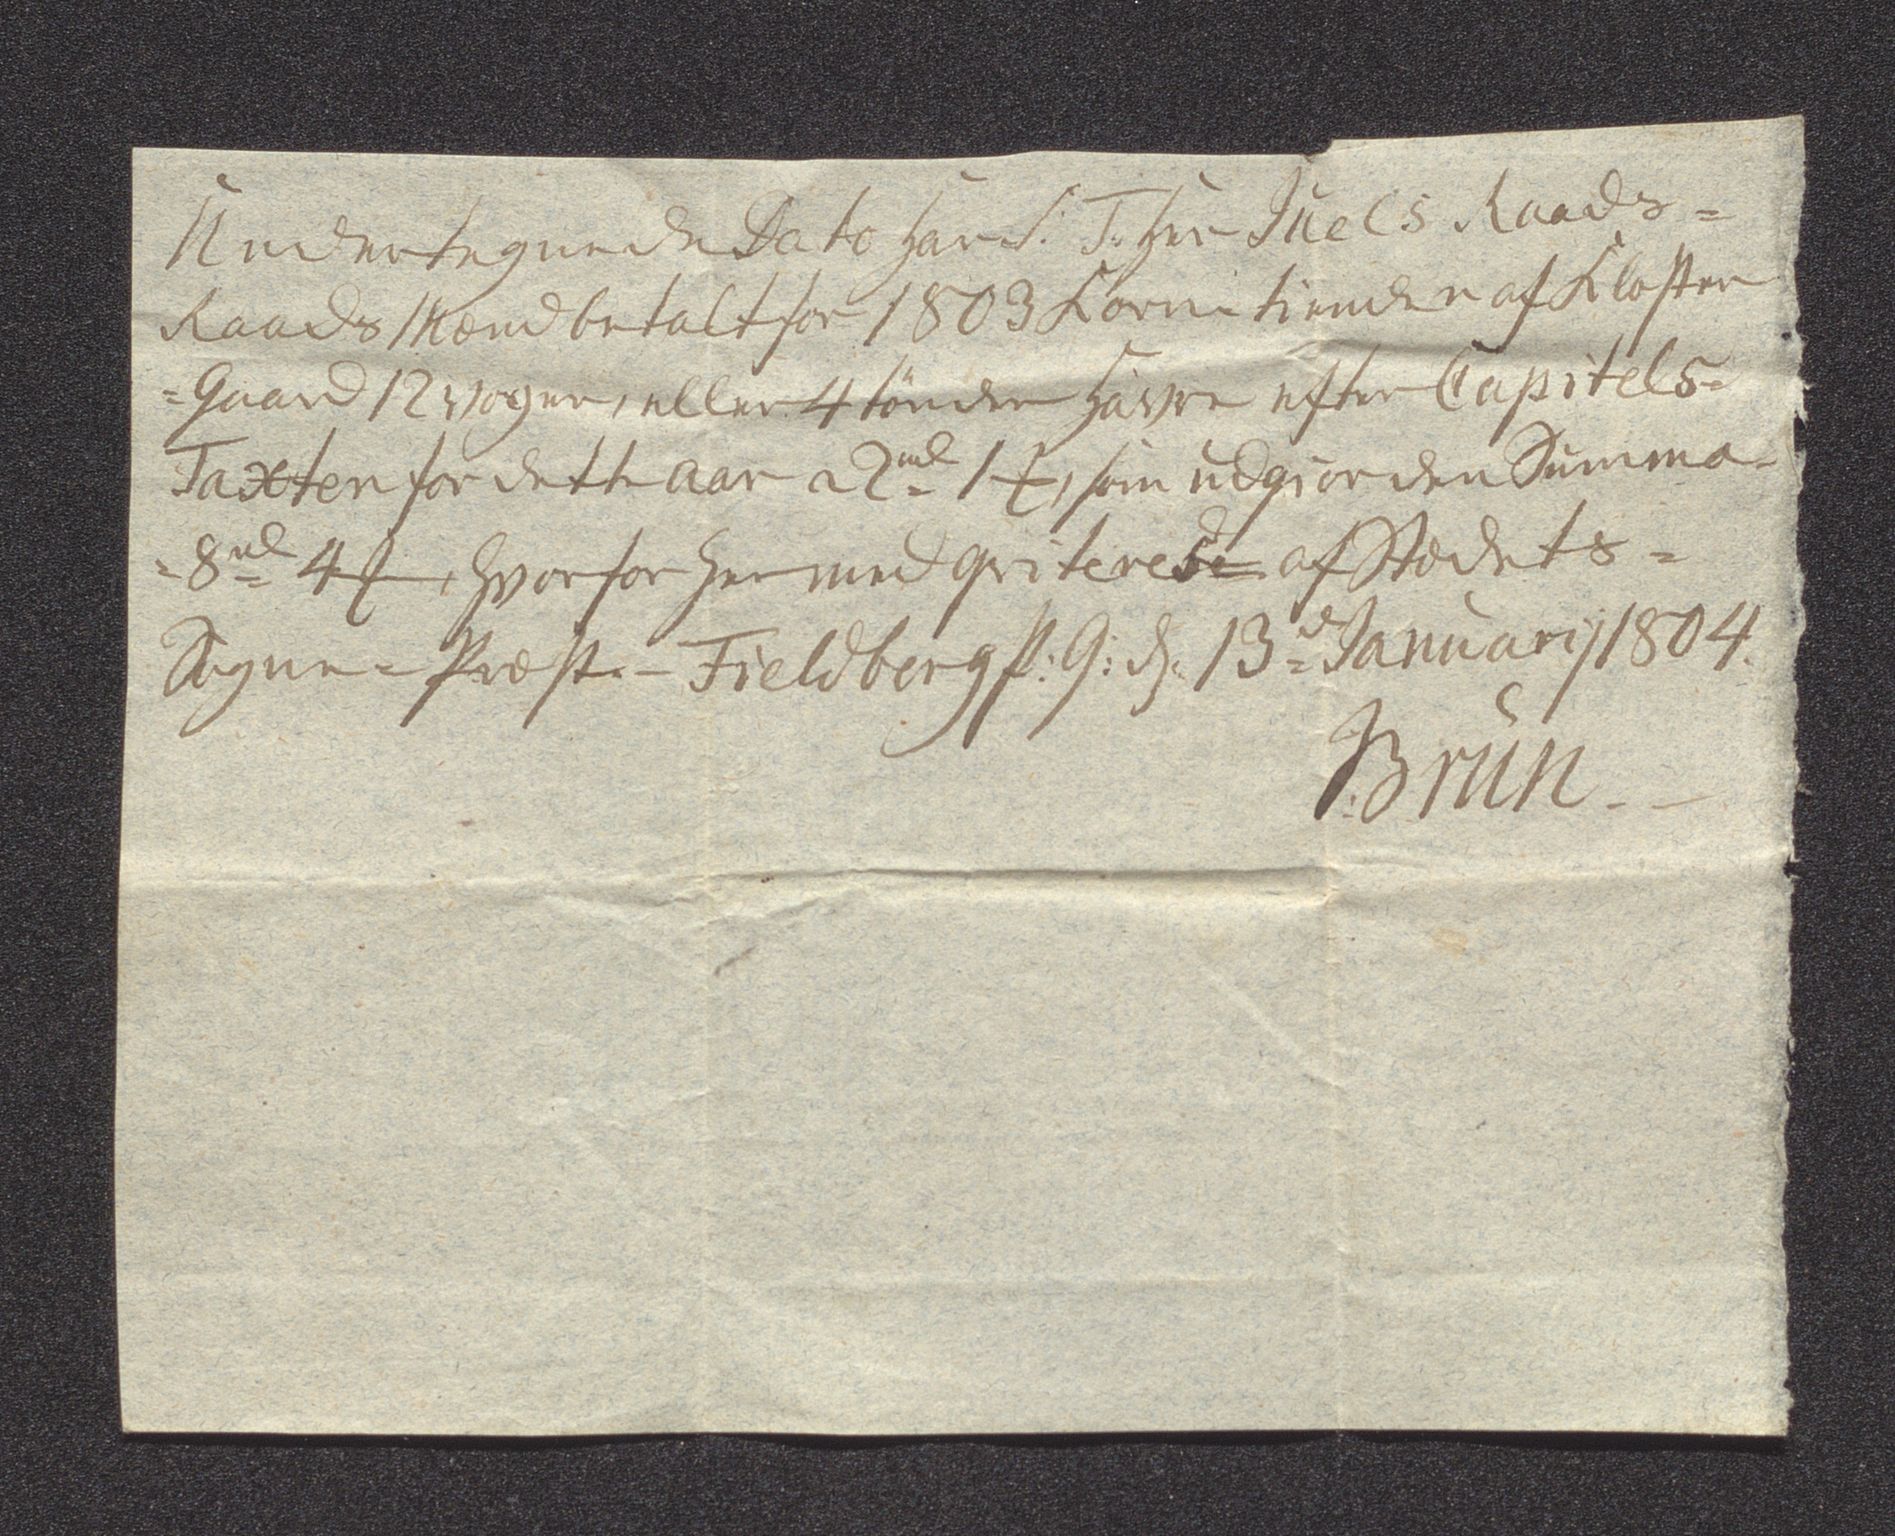 Undertegnede Dato har S: T: Herr Juels Raads-
Raads Mænd betalt for 1803 Korn-tienden af Kloster
=Gaard 12 voger, eller 4 tönder Havre efter Capitels-
Taxten for dette Aar a 2 rd 1 ß, som udgiør den Summa-
=8 rd 4 ß, hvorfor hermed qviteres af Stedets=
Sogne=Præst.- Fieldberg P: G: d: 13 d Januarij 1804.
Brun. -